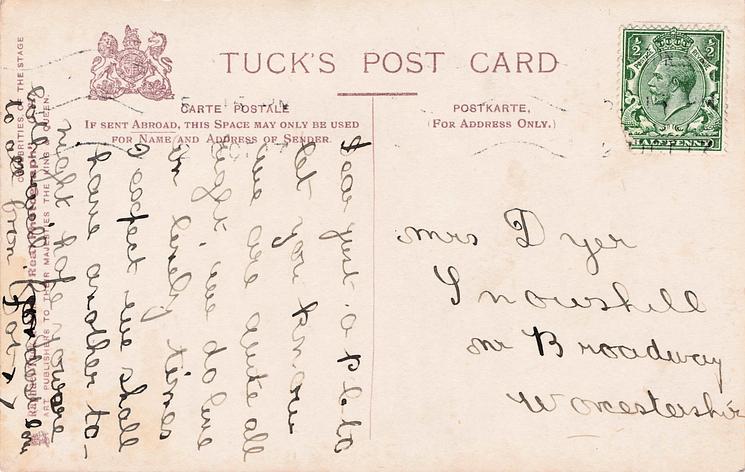 TUCK'S POST CARD
CARTE POSTALE
IF SENT ABROAD, THIS SPACE MAY ONLY BE USED
FOR NAME AND ADDRESS OF SENDER.
POSTKARTE,
(FOR ADDRESS ONLY.)
½ ½
HALFPENNY
Mrs Dyer
Snowshill
nr Broadway
Worcestershire
Dear just a P.C. to
let you know
we are quite all
right we do have
lively times
I expect we shall
have another to-
night hope you are
all
to all from
CELEBRITIES OF THE STAGE
ART PUBLISHERS TO THEIR MAJESTIES THE KING & QUEEN